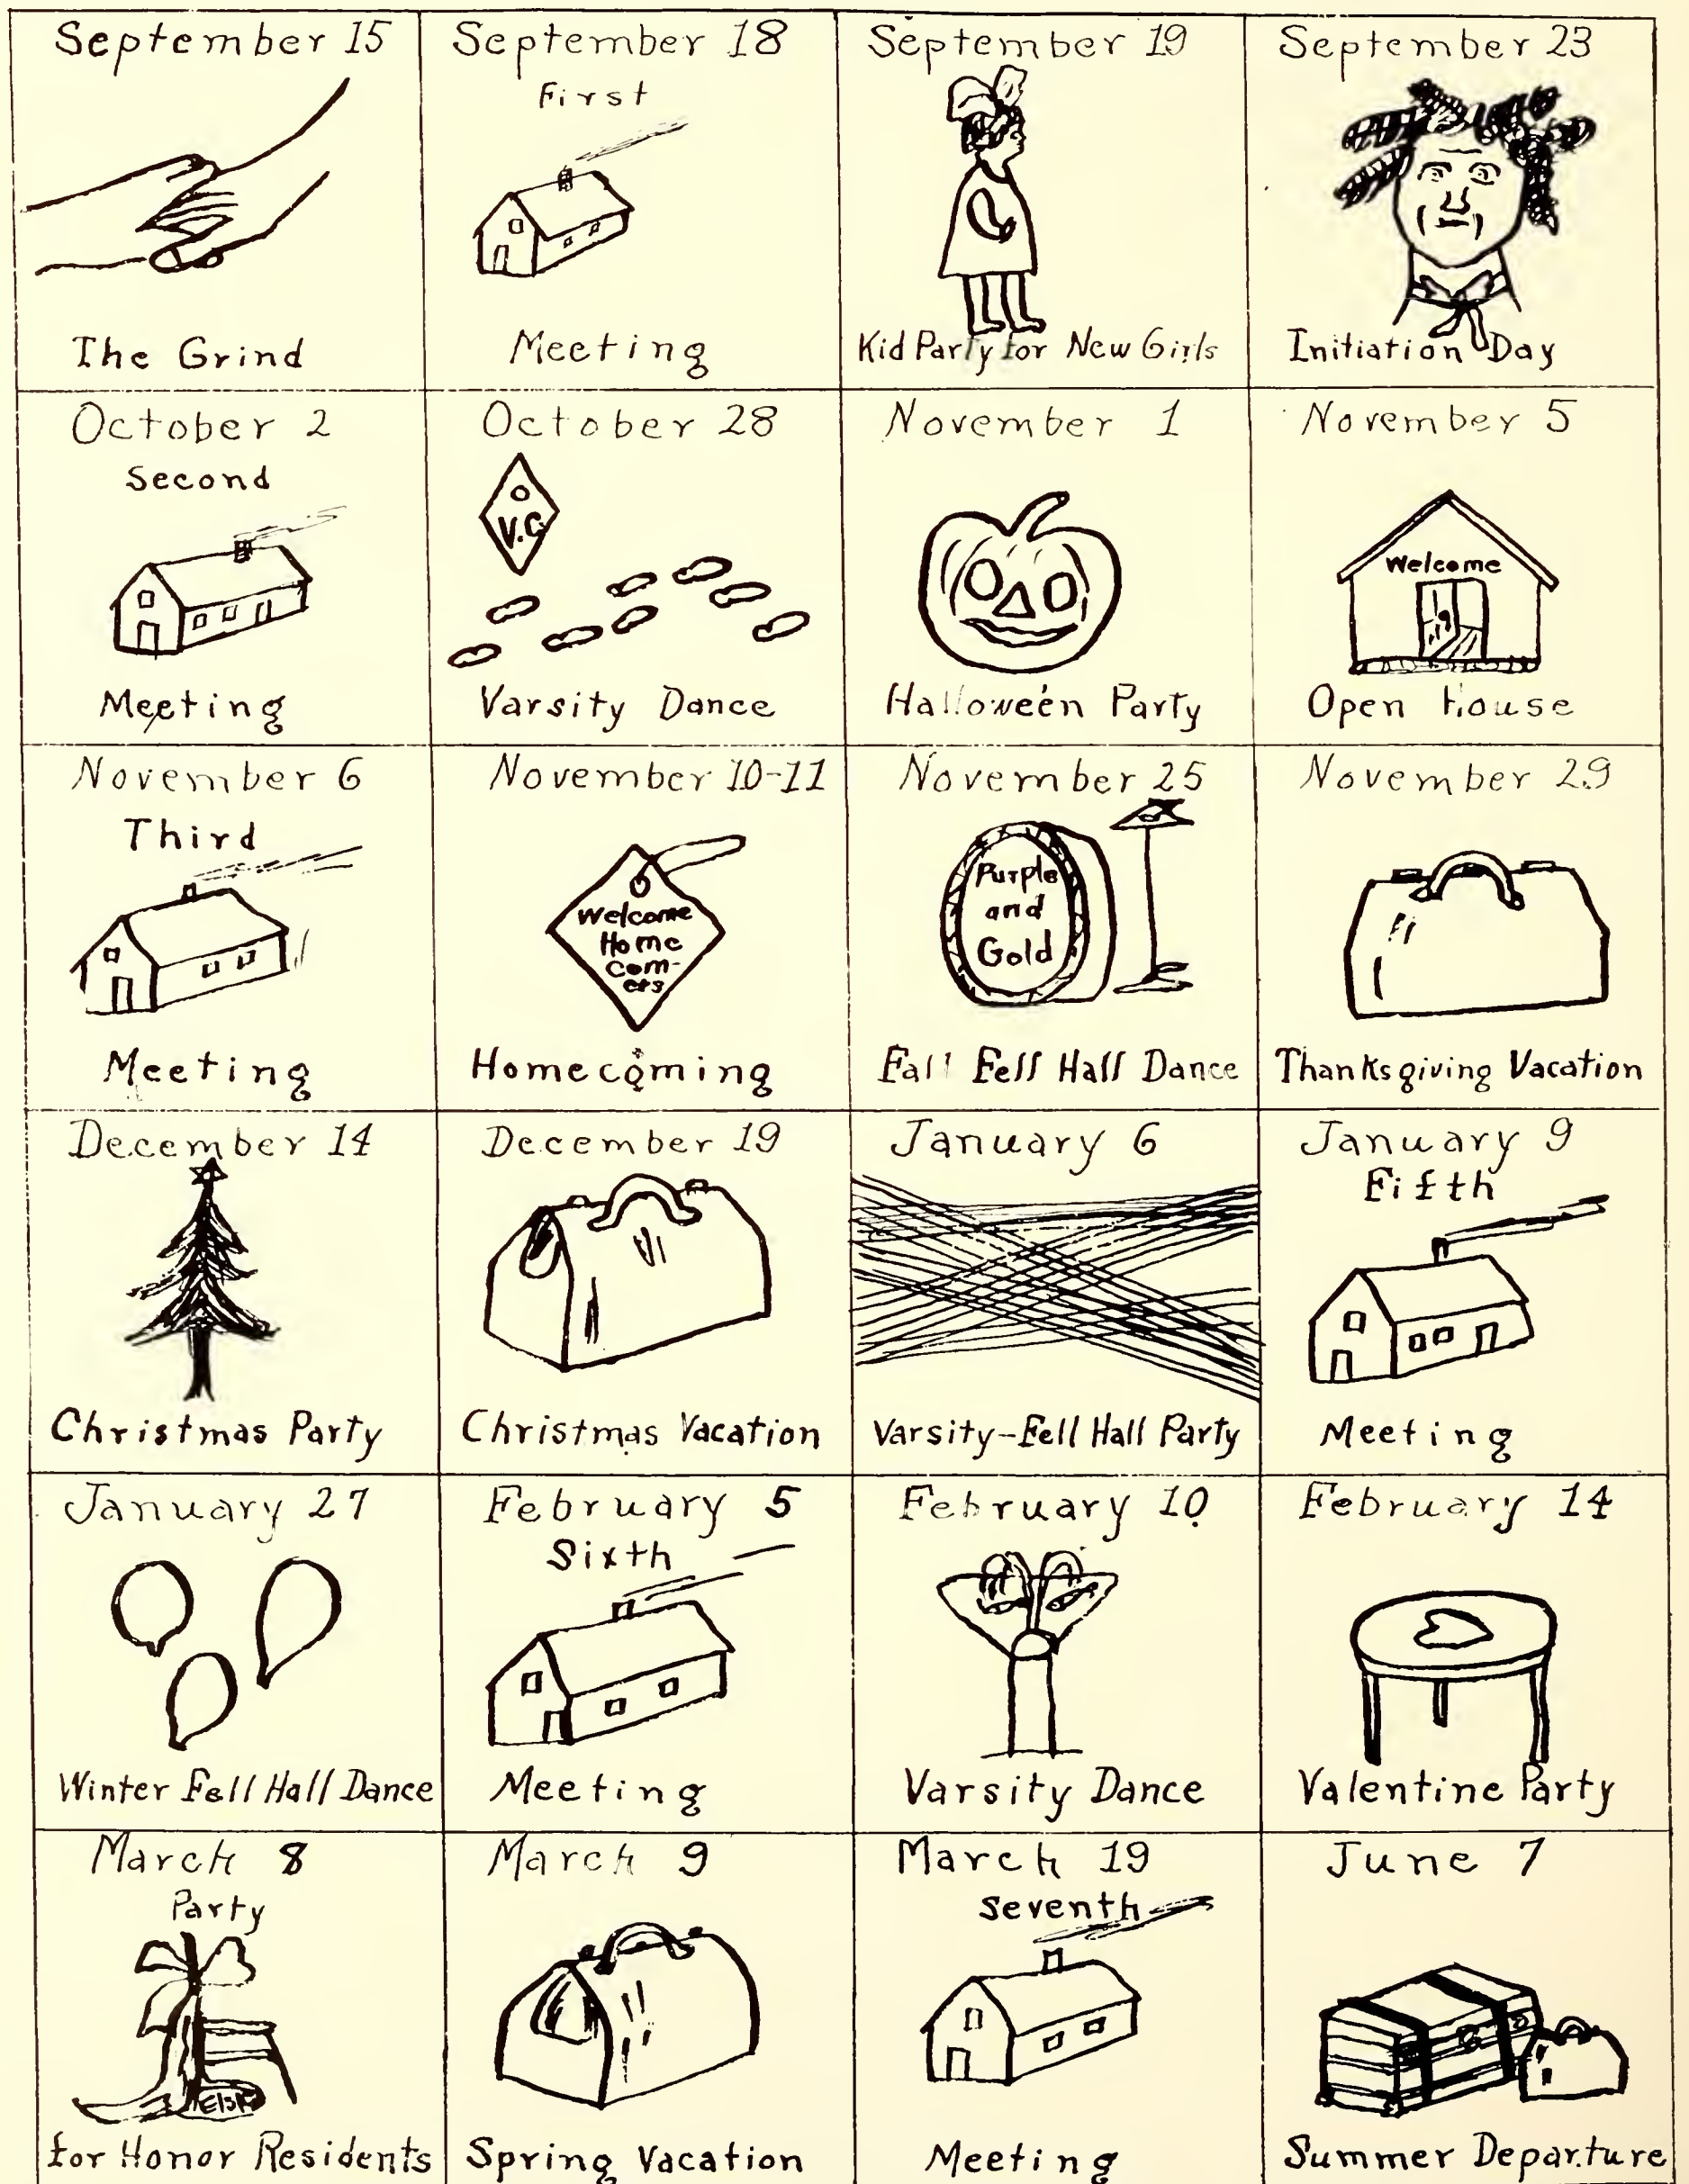 September 15
The Grind
September 18
First
Meeting
September 19
Kid Party for New Girls
September 23
Initiation Day
October 2
Second
Meeting
October 28
V.C.
Varsity Dance
November 1
Halloween Party
November 5
Welcome
Open House
November 6
Third
Meeting
November 10-11
Welcome
Home
com-
ers
Homecoming
November 25
Purple
and
Gold
Fall Fell Hall Dance
November 29
Thanksgiving Vacation
December 14
Christmas Party
December 19
Christmas Vacation
January 6
Varsity-Fell Hall Party
January 9
Fifth
Meeting
January 27
Winter Fell Hall Dance
February 5
Sixth
Meeting
February 10
Varsity Dance
February 14
Valentine Party
March 8
Party
for Honor Residents
March 9
Spring Vacation
March 19
Seventh
Meeting
June 7
Summer Departure